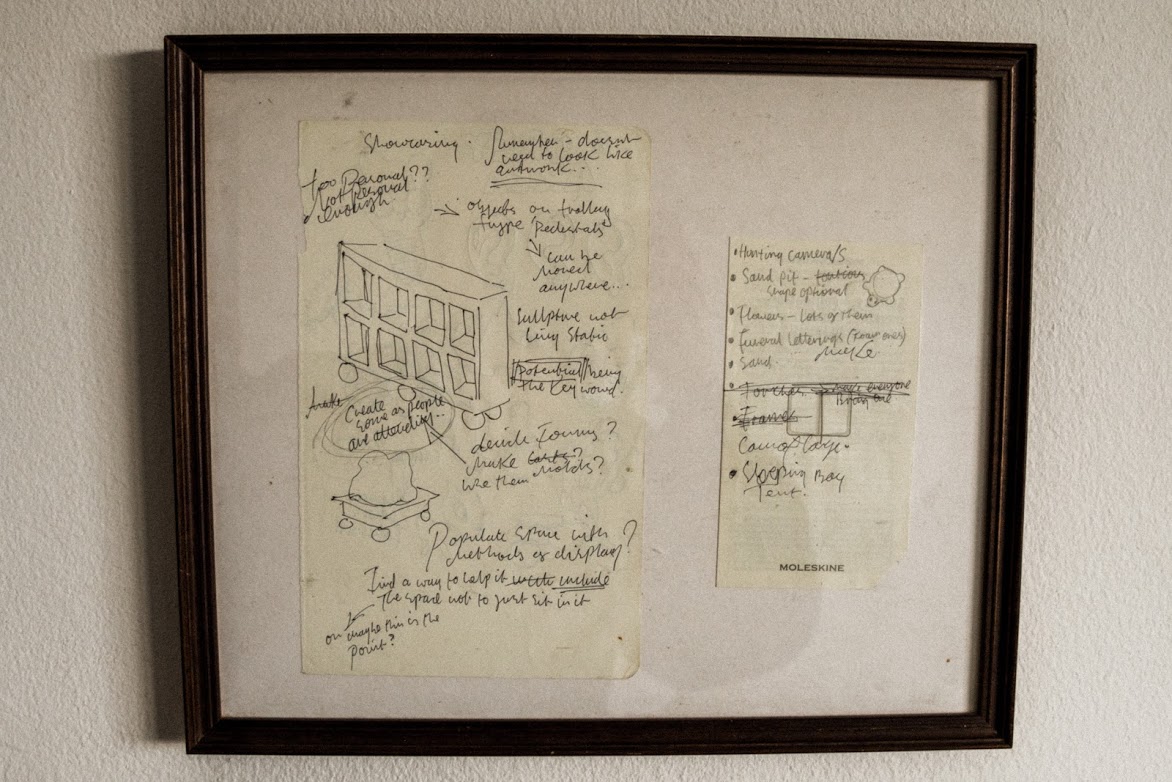 Showcasing.
Remember - doesn't
need to look like
artwork...
too Personal??
Not Personal
enough.
objects on trolley
type 'Pedestals'
can be
moved
anywhere...
Sculpture not
being static
Potential being
the key word.
make
Create
some as people
are attending...
decide Form?
Make casts?
like them Molds?
Populate space with
methods of display?
Find a way to help it with include
the space not to just sit in it
or maybe this is the
point?
Hunting camera/s
Sand pit -
Shape optional
Flowers - Lots of them
Funeral Letterings (Foam ones)
make
Sand.
Torches make everyone
Bring one
Frames
Camoflarge.
Sleeping Bag
Tent.
MOLESKINE